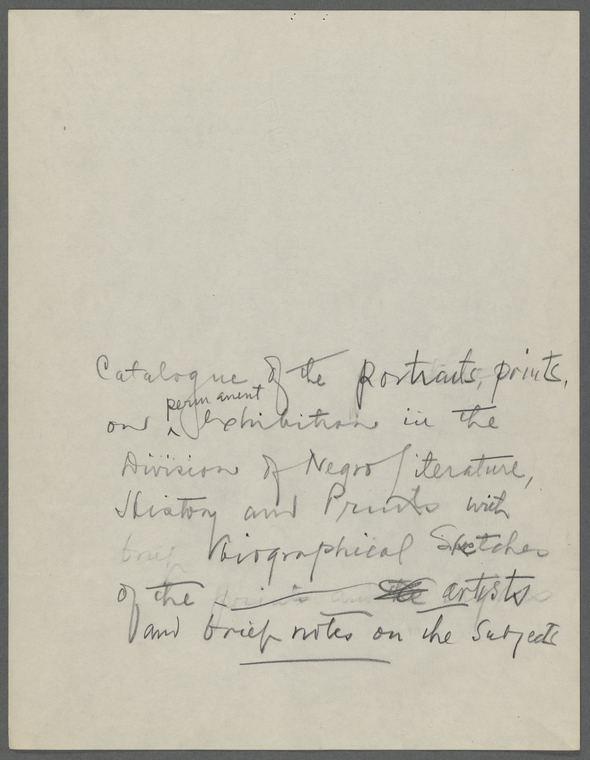 Catalogue of the portraits, prints,
on permanent exhibition in the
Division of Negro Literature,
History and Prints with
biographical Sketches
of the artists
and brief notes on the Subjects